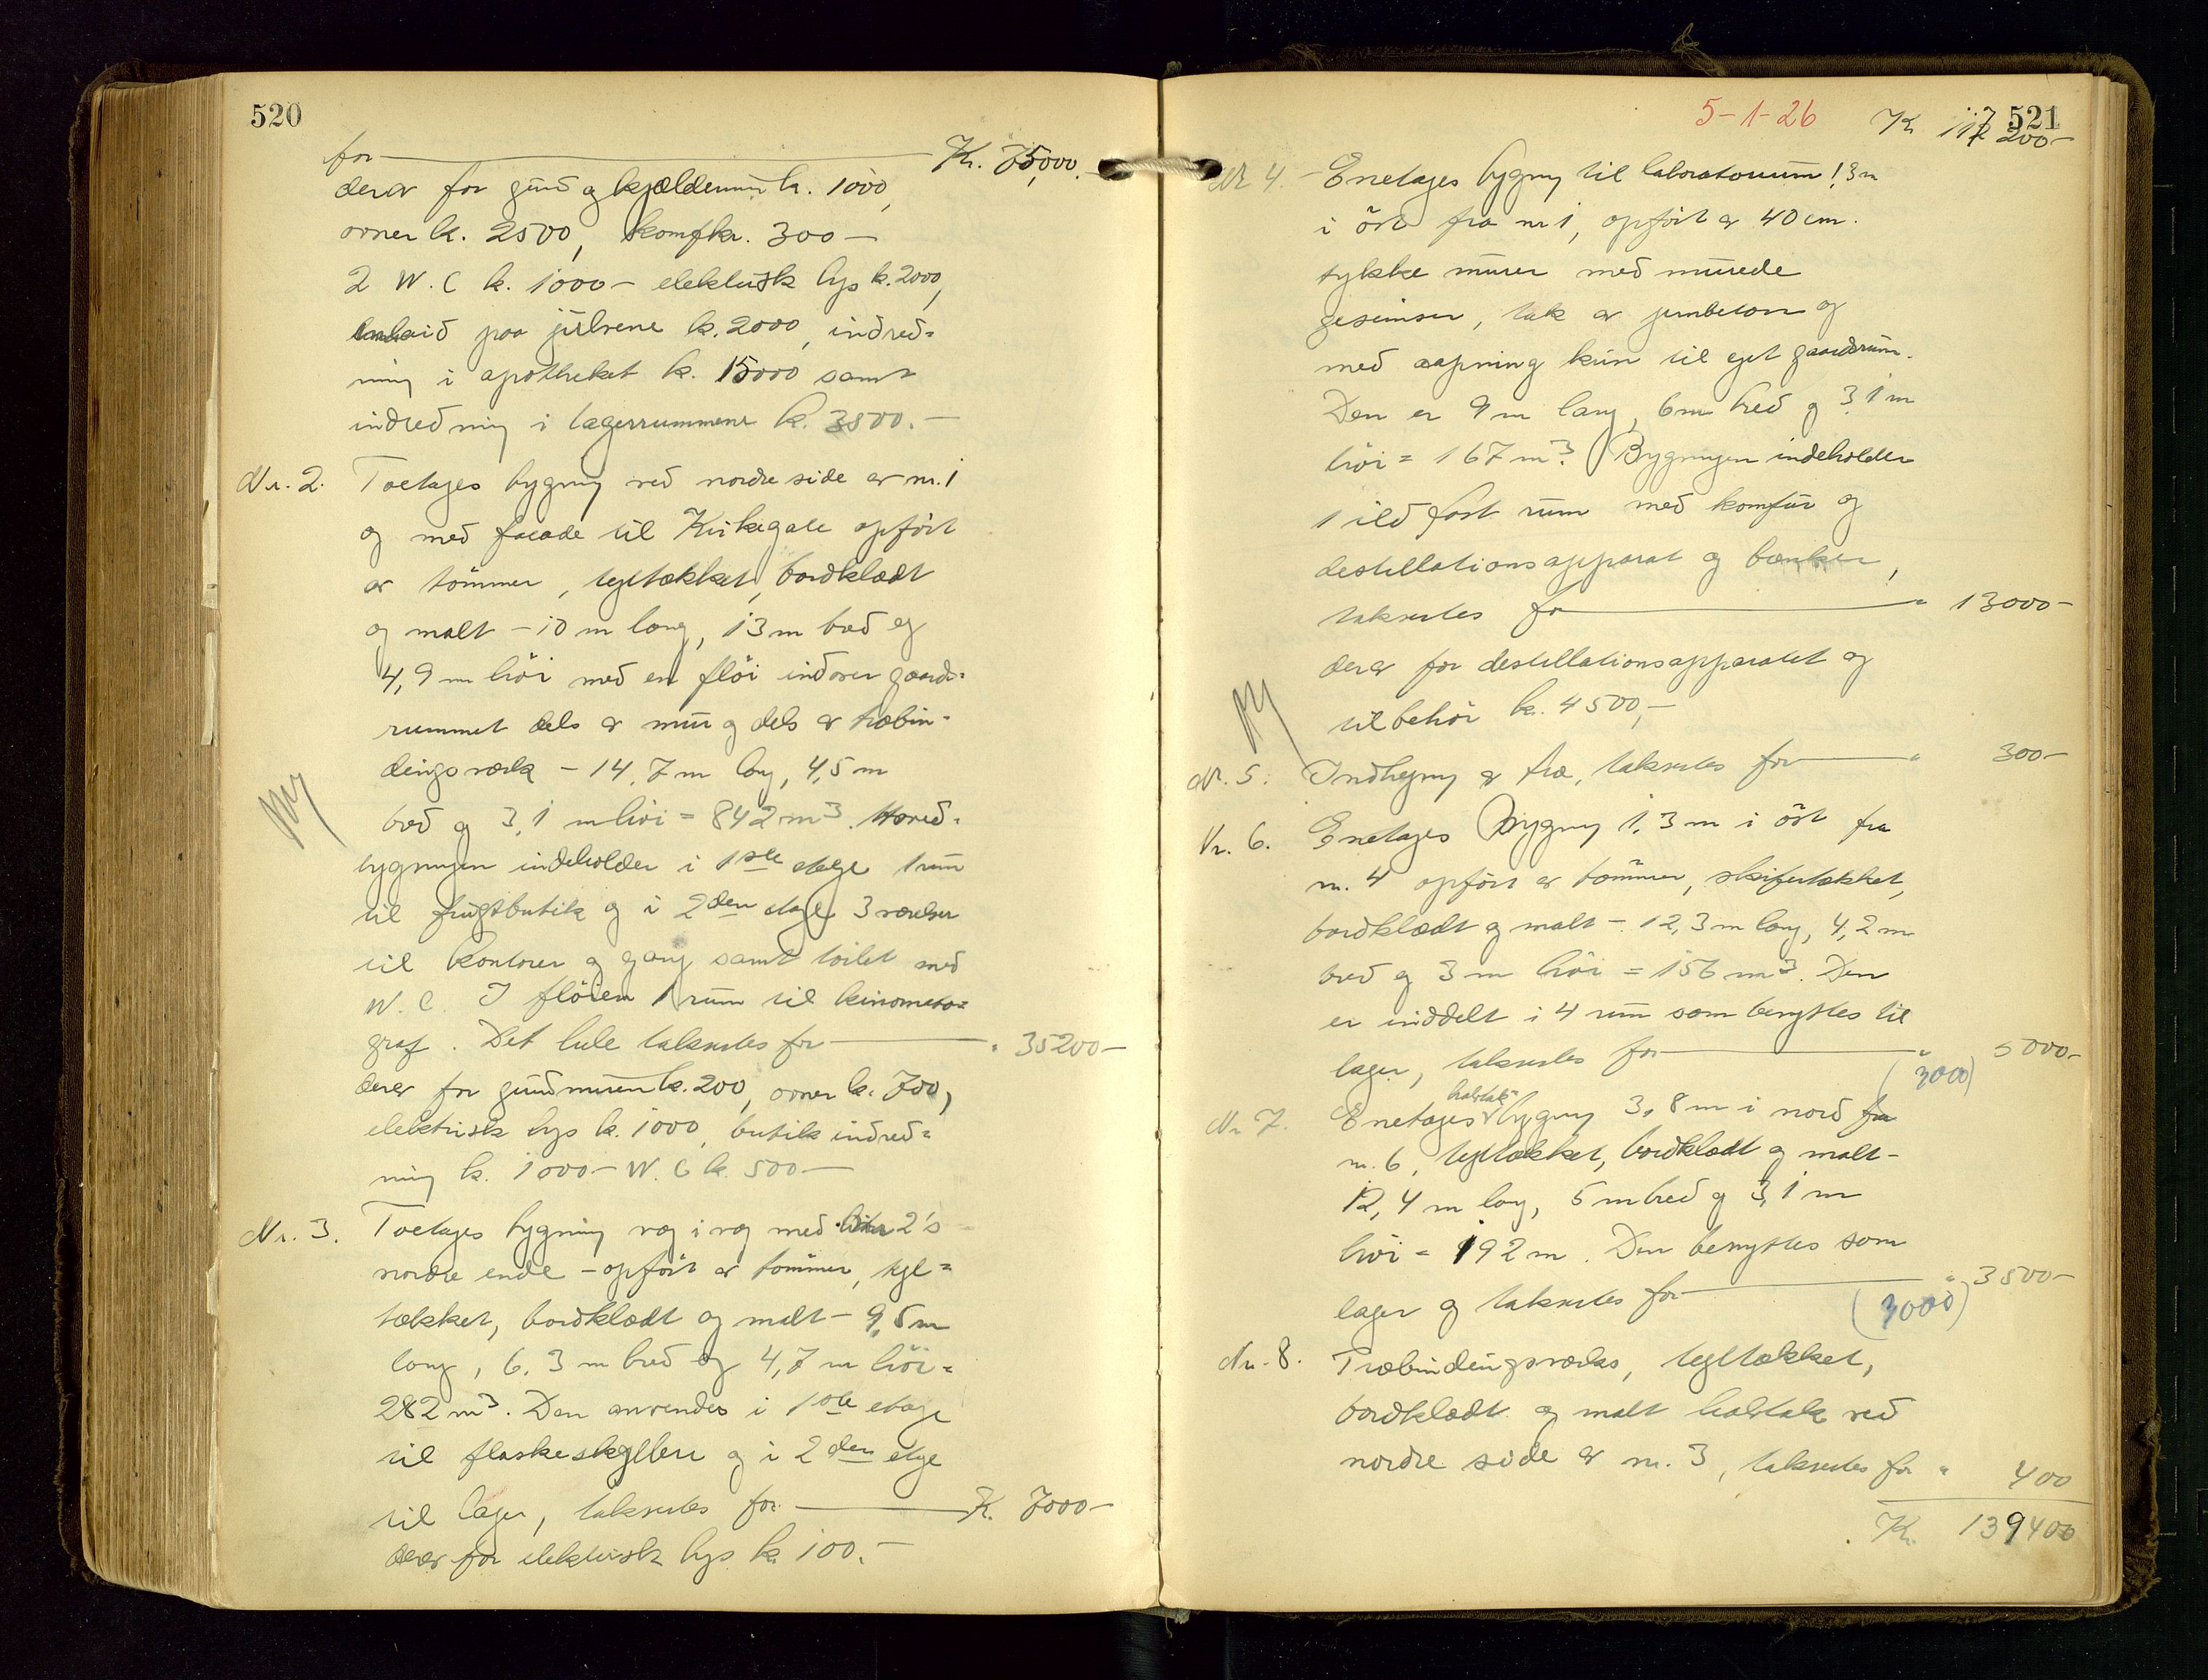 520
for — Kr. 75,000.-
derav for grund og kjældermur kr. 1000,
ovner kr. 2500, komf kr. 300 —
2 W.C kr. 1000 — elektrisk lys kr. 2000,
paa gulvene kr. 2000, indred=
ning i apotheket kr. 15000 samt
indredning i lagerrummene kr. 3500.—
Nr. 2. Toetages bygning ved nordre side av nr. 1
og med facade til Kirkegate opført
av tømmer, tegltækket, bordklædt
og malt — 10 m lang, 13 m bred og
4,9 m høi med en fløi indover gaards=
rummet dels av mur og dels av træbin=
dingsverk — 14,7 m lang, 4,5 m
bred og 3,1 m høi = 842 m³. Hoved=
bygningen indeholder i 1ste etage 1 rum
til frugtbutik og i 2den etage 3 værelser
til kontorer og gang samt toilet med
W.C. I fløien 1 rum til kinemato=
graf. Det hele takseres for — " 35200 —
derav for grundmuren kr. 200, ovner kr. 700,
elektrisk lys kr. 1000, butik indred=
ning kr. 1000 — W.C kr. 500 —
Nr. 3. Toetages bygning væg i væg med 2's
nordre ende — opført av tømmer, tegl=
tækket, bordklædt og malt — 9,5 m
lang, 6,3 m bred og 4,7 m høi =
282 m³. Den anvendes i 1ste etage
til flaskeskylleri og i 2den etage
til lager, takseres for — Kr. 7000 —
derav for elektrisk lys kr. 100.—
521
5-1-26 Kr. 117 200 —
Nr 4. Enetages bygning til laboratorium 1,3 m
i øst fra nr 1, opført av 40 cm.
tykke murer med murede
gesimser, tak av jernbeton og
med aapning kun til eget gaardsrum.
Den er 9 m lang, 6 m bred og 3,1 m
høi = 167 m³. Bygningen indeholder
1 ildfast rum med komfur og
destillationsapparat og bænker,
takseres for — " 13000 —
derav for destillationsapparatet og
tilbehør kr. 4500,—
Nr. 5. Indhegning av træ, takseres for — " 300 —
Nr. 6. Enetages bygning 1,3 m i øst fra
nr. 4 opført av tømmer, skifertækket,
bordklædt og malt — 12,3 m lang, 4,2 m
bred og 3 m høi = 156 m³. Den
er inddelt i 4 rum som benyttes til
lager, takseres for — " 5000 —
(3000)
Nr 7. Enetages halvtak bygning 3,8 m i nord fra
nr. 6, tegltækket, bordklædt og malt —
12,4 m lang, 5 m bred og 3,1 m
høi = 192 m. Den benyttes som
lager og takseres for — " 3500 —
(3000)
Nr. 8. Træbindingsverks, tegltækket,
bordklædt og malt halvtak ved
nordre side av nr. 3, takseres for " 400
Kr. 139400